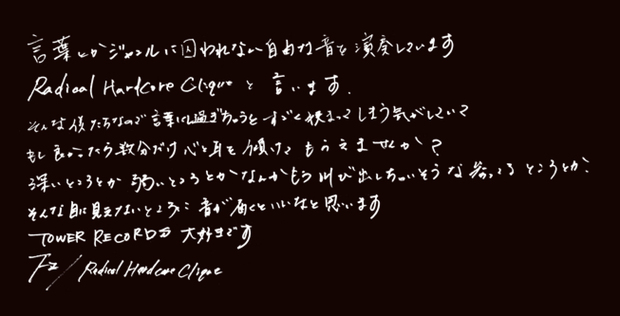 言葉とかジャンルに囚われない自由な音を演奏しています
Radical Hardcore Clique と言います.
そんな僕たちなので言葉にし過ぎちゃうとすごく狭まってしまう気がしていて
もし良かったら数分だけ心と耳を傾けてもらえませんか?
深いところとか弱いところとかなんかもう叫び出しちゃいそうな尖ってるところとか、
そんな目に見えないところに音が届くといいなと思います
TOWER RECORDS 大好きです
/ Radical Hardcore Clique